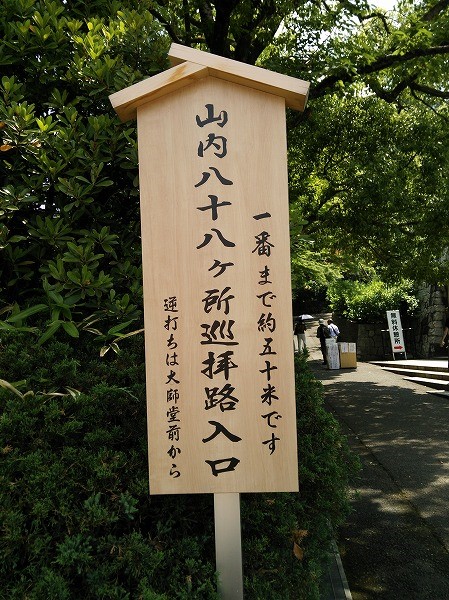 一番まで約五十米です
山内八十八ヶ所巡拝路入口
逆打ちは大師堂前から
無料休憩所